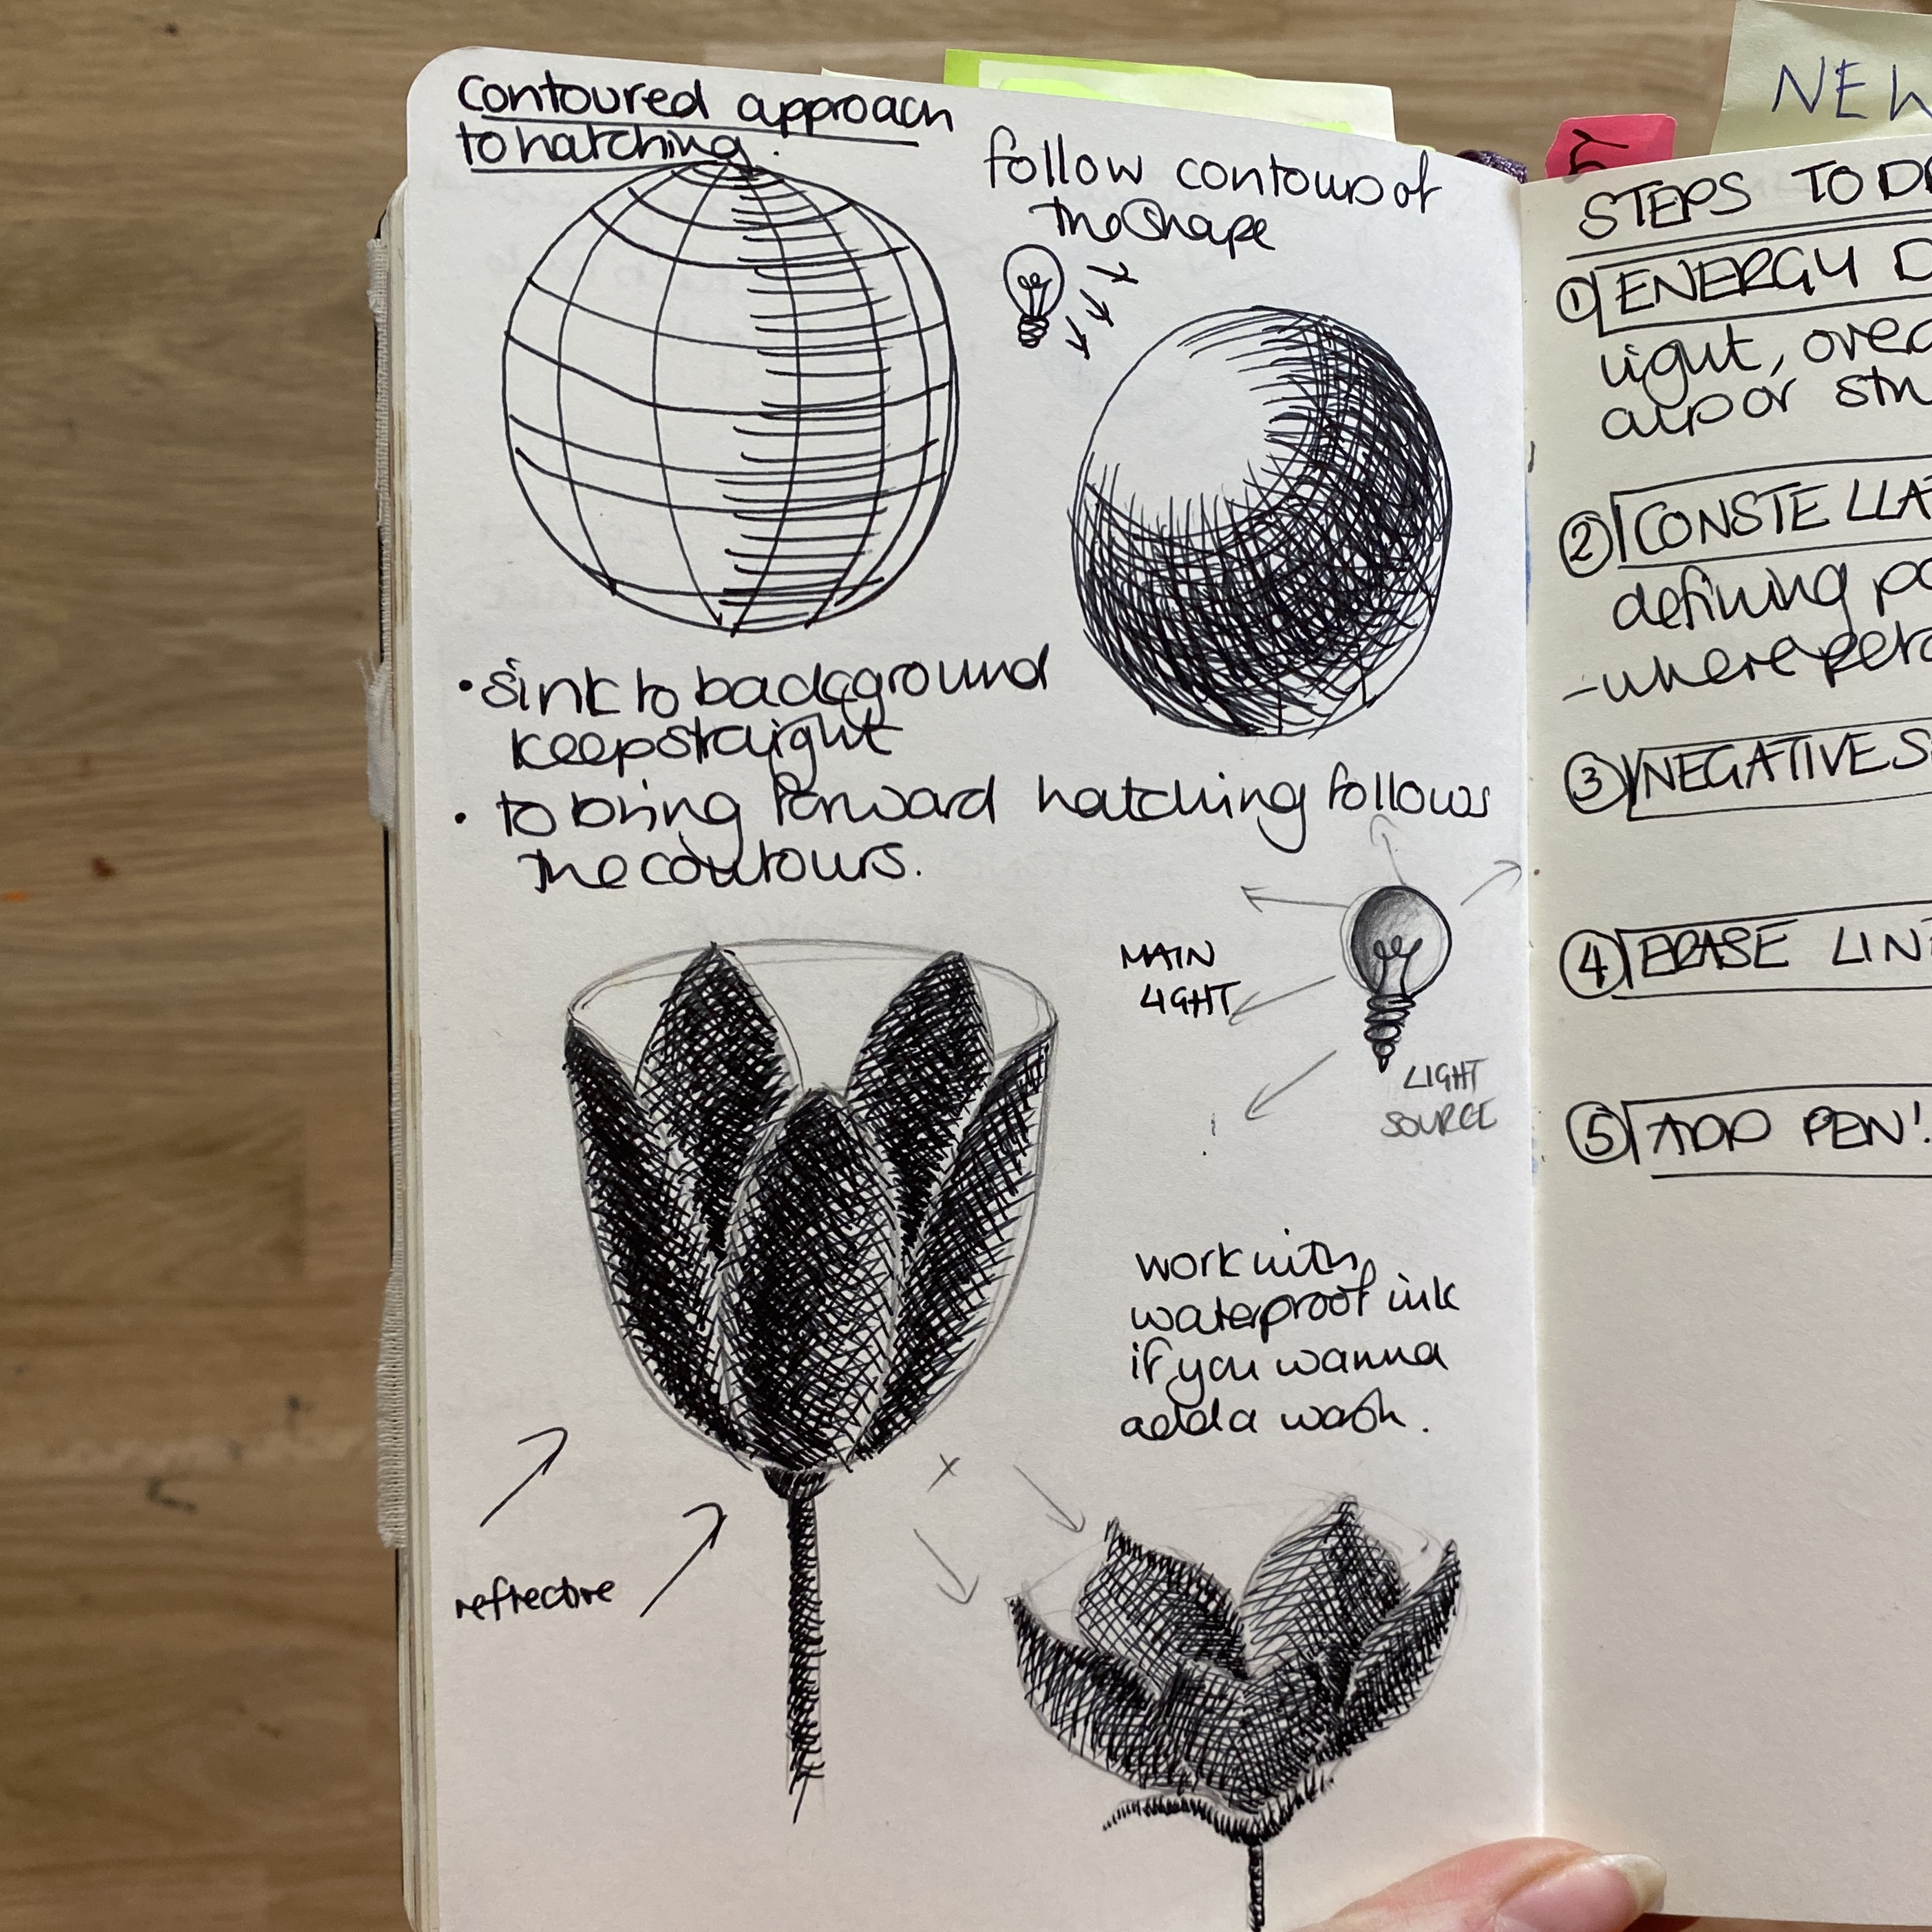 Contoured approach
to hatching.
follow contours of
the shape
• sink to background
keep straight
• to bring forward hatching follows
the contours.
MAIN
LIGHT
LIGHT
SOURCE
work with
waterproof ink
if you wanna
add a wash.
reflective
NEW
STEPS TO
① ENERGY
light,
②
defining
- where
③ NEGATIVE
④ ERASE
⑤ ADD PEN!